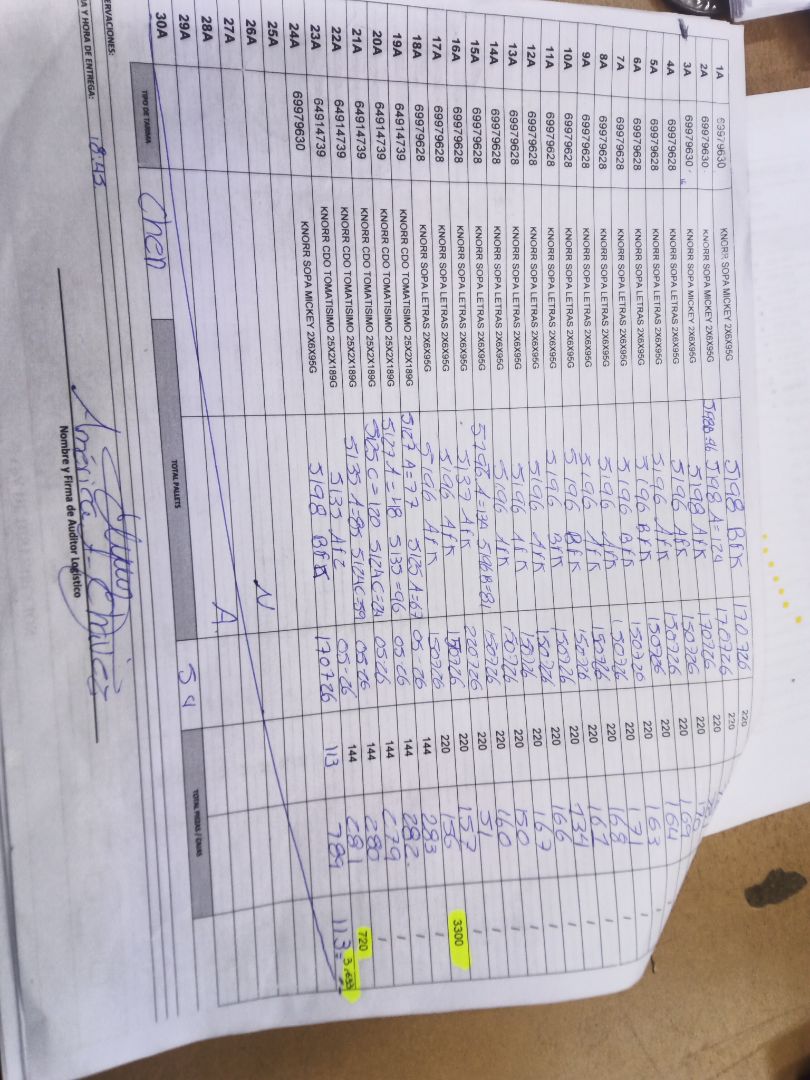 1A 69979630 KNORR SOPA MICKEY 2X6X95G 5198 BFK 170726 220
2A 69979630 KNORR SOPA MICKEY 2X6X95G 5198 A=124 170726 220
3A 69979630 KNORR SOPA MICKEY 2X6X95G 5198 AFK 170726 220
4A 69979628 KNORR SOPA LETRAS 2X6X95G 5196 AFK 150726 220
5A 69979628 KNORR SOPA LETRAS 2X6X95G 5196 AFK 150726 220 169
6A 69979628 KNORR SOPA LETRAS 2X6X95G 5196 BFK 150726 220 164
7A 69979628 KNORR SOPA LETRAS 2X6X95G 5196 BFK 150726 220 163
8A 69979628 KNORR SOPA LETRAS 2X6X95G 5196 AFK 150726 220 171
9A 69979628 KNORR SOPA LETRAS 2X6X95G 5196 AFK 150726 220 168
10A 69979628 KNORR SOPA LETRAS 2X6X95G 5196 BFK 150726 220 167
11A 69979628 KNORR SOPA LETRAS 2X6X95G 5196 BFK 150726 220 734
12A 69979628 KNORR SOPA LETRAS 2X6X95G 5196 AFK 150726 220 166
13A 69979628 KNORR SOPA LETRAS 2X6X95G 5196 AFK 150726 220 167
14A 69979628 KNORR SOPA LETRAS 2X6X95G 5196 AFK 150726 220 150
15A 69979628 KNORR SOPA LETRAS 2X6X95G 5196 A=139 5196B=81 150726 220 160
16A 69979628 KNORR SOPA LETRAS 2X6X95G 5137 AFK 200726 220 51
17A 69979628 KNORR SOPA LETRAS 2X6X95G 5196 AFK 150726 220 157
18A 69979628 KNORR SOPA LETRAS 2X6X95G 5196 AFK 150726 220 156 3300
19A 64914739 KNORR CDO TOMATISIMO 25X2X189G 5127 A=77 5125 A=67 05 26 144 283
20A 64914739 KNORR CDO TOMATISIMO 25X2X189G 5127 A=48 5133=96 05 26 144 282
21A 64914739 KNORR CDO TOMATISIMO 25X2X189G 5125 C=120 5124C=24 0526 144 279
22A 64914739 KNORR CDO TOMATISIMO 25X2X189G 5135 A=85 5124C=59 0526 144 280
23A 64914739 KNORR CDO TOMATISIMO 25X2X189G 5133 AFZ 05 26 144 281 720
24A 69979630 KNORR SOPA MICKEY 2X6X95G 5198 BFK 170726 113 789 113=
25A
26A N
27A
28A A.
29A
30A
TIPO DE TARIMA Chep TOTAL PALLETS TOTAL PIEZAS / CAJAS
18:45
Nombre y Firma de Auditor Logístico